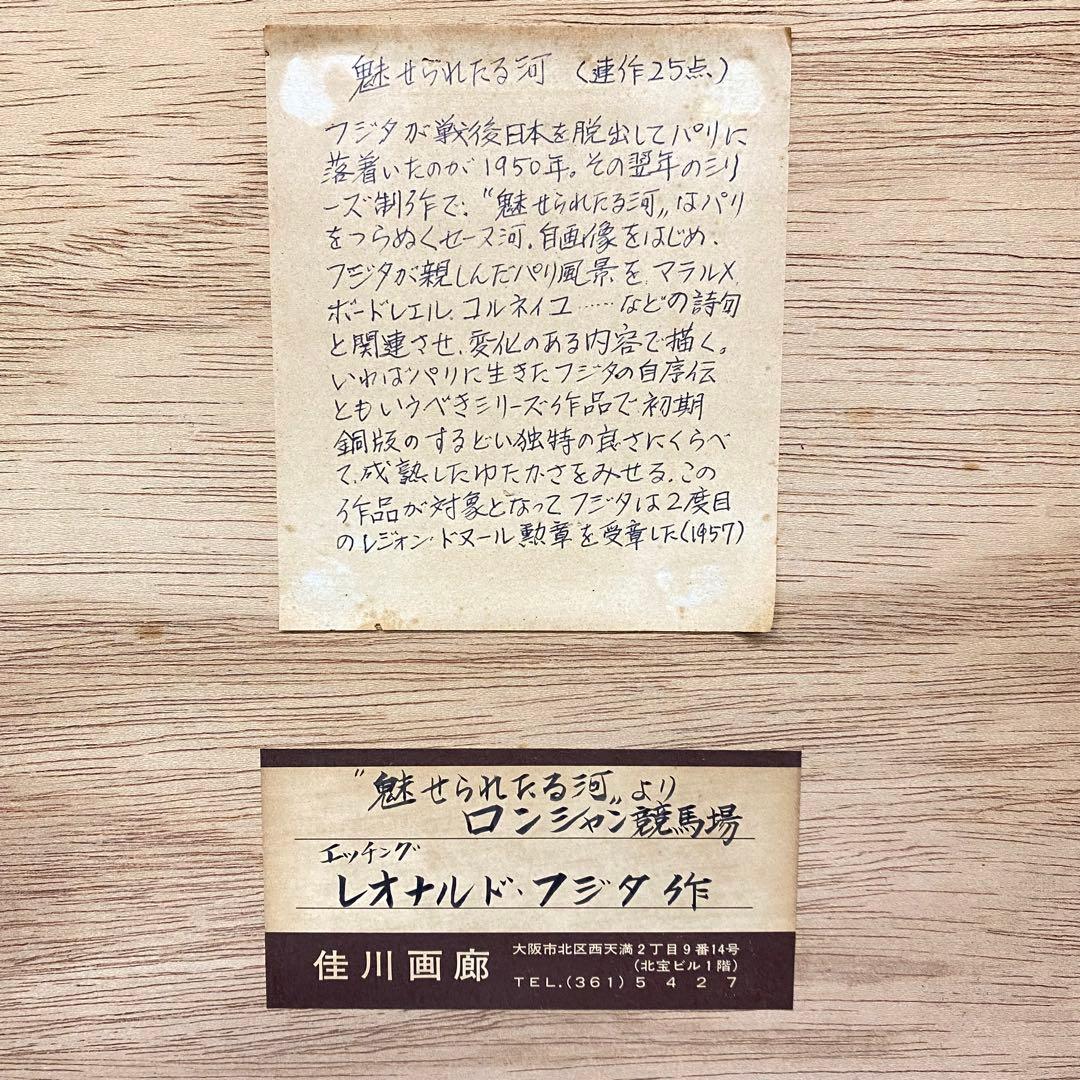 魅せられたる河 （連作25点）
フジタが戦後日本を脱出してパリに
落着いたのが1950年。その翌年のシリ
ーズ制作で、〝魅せられたる河〟はパリ
をつらぬくセーヌ河、自画像をはじめ、
フジタが親しんだパリ風景を、マラルメ、
ボードレエル、コルネイユ……などの詩句
と関連させ、変化のある内容で描く。
いわばパリに生きたフジタの自序伝
ともいうべきシリーズ作品で初期
銅版のするどい独特の良さにくらべ
て、成熟したゆたかさをみせる。この
作品が対象となってフジタは2度目
のレジオン・ドヌール勲章を受章した（1957）
〝魅せられたる河〟より
ロンシャン競馬場
エッチング
レオナルド・フジタ作
佳川画廊
大阪市北区西天満2丁目9番14号
（北宝ビル1階）
TEL.（361）5427